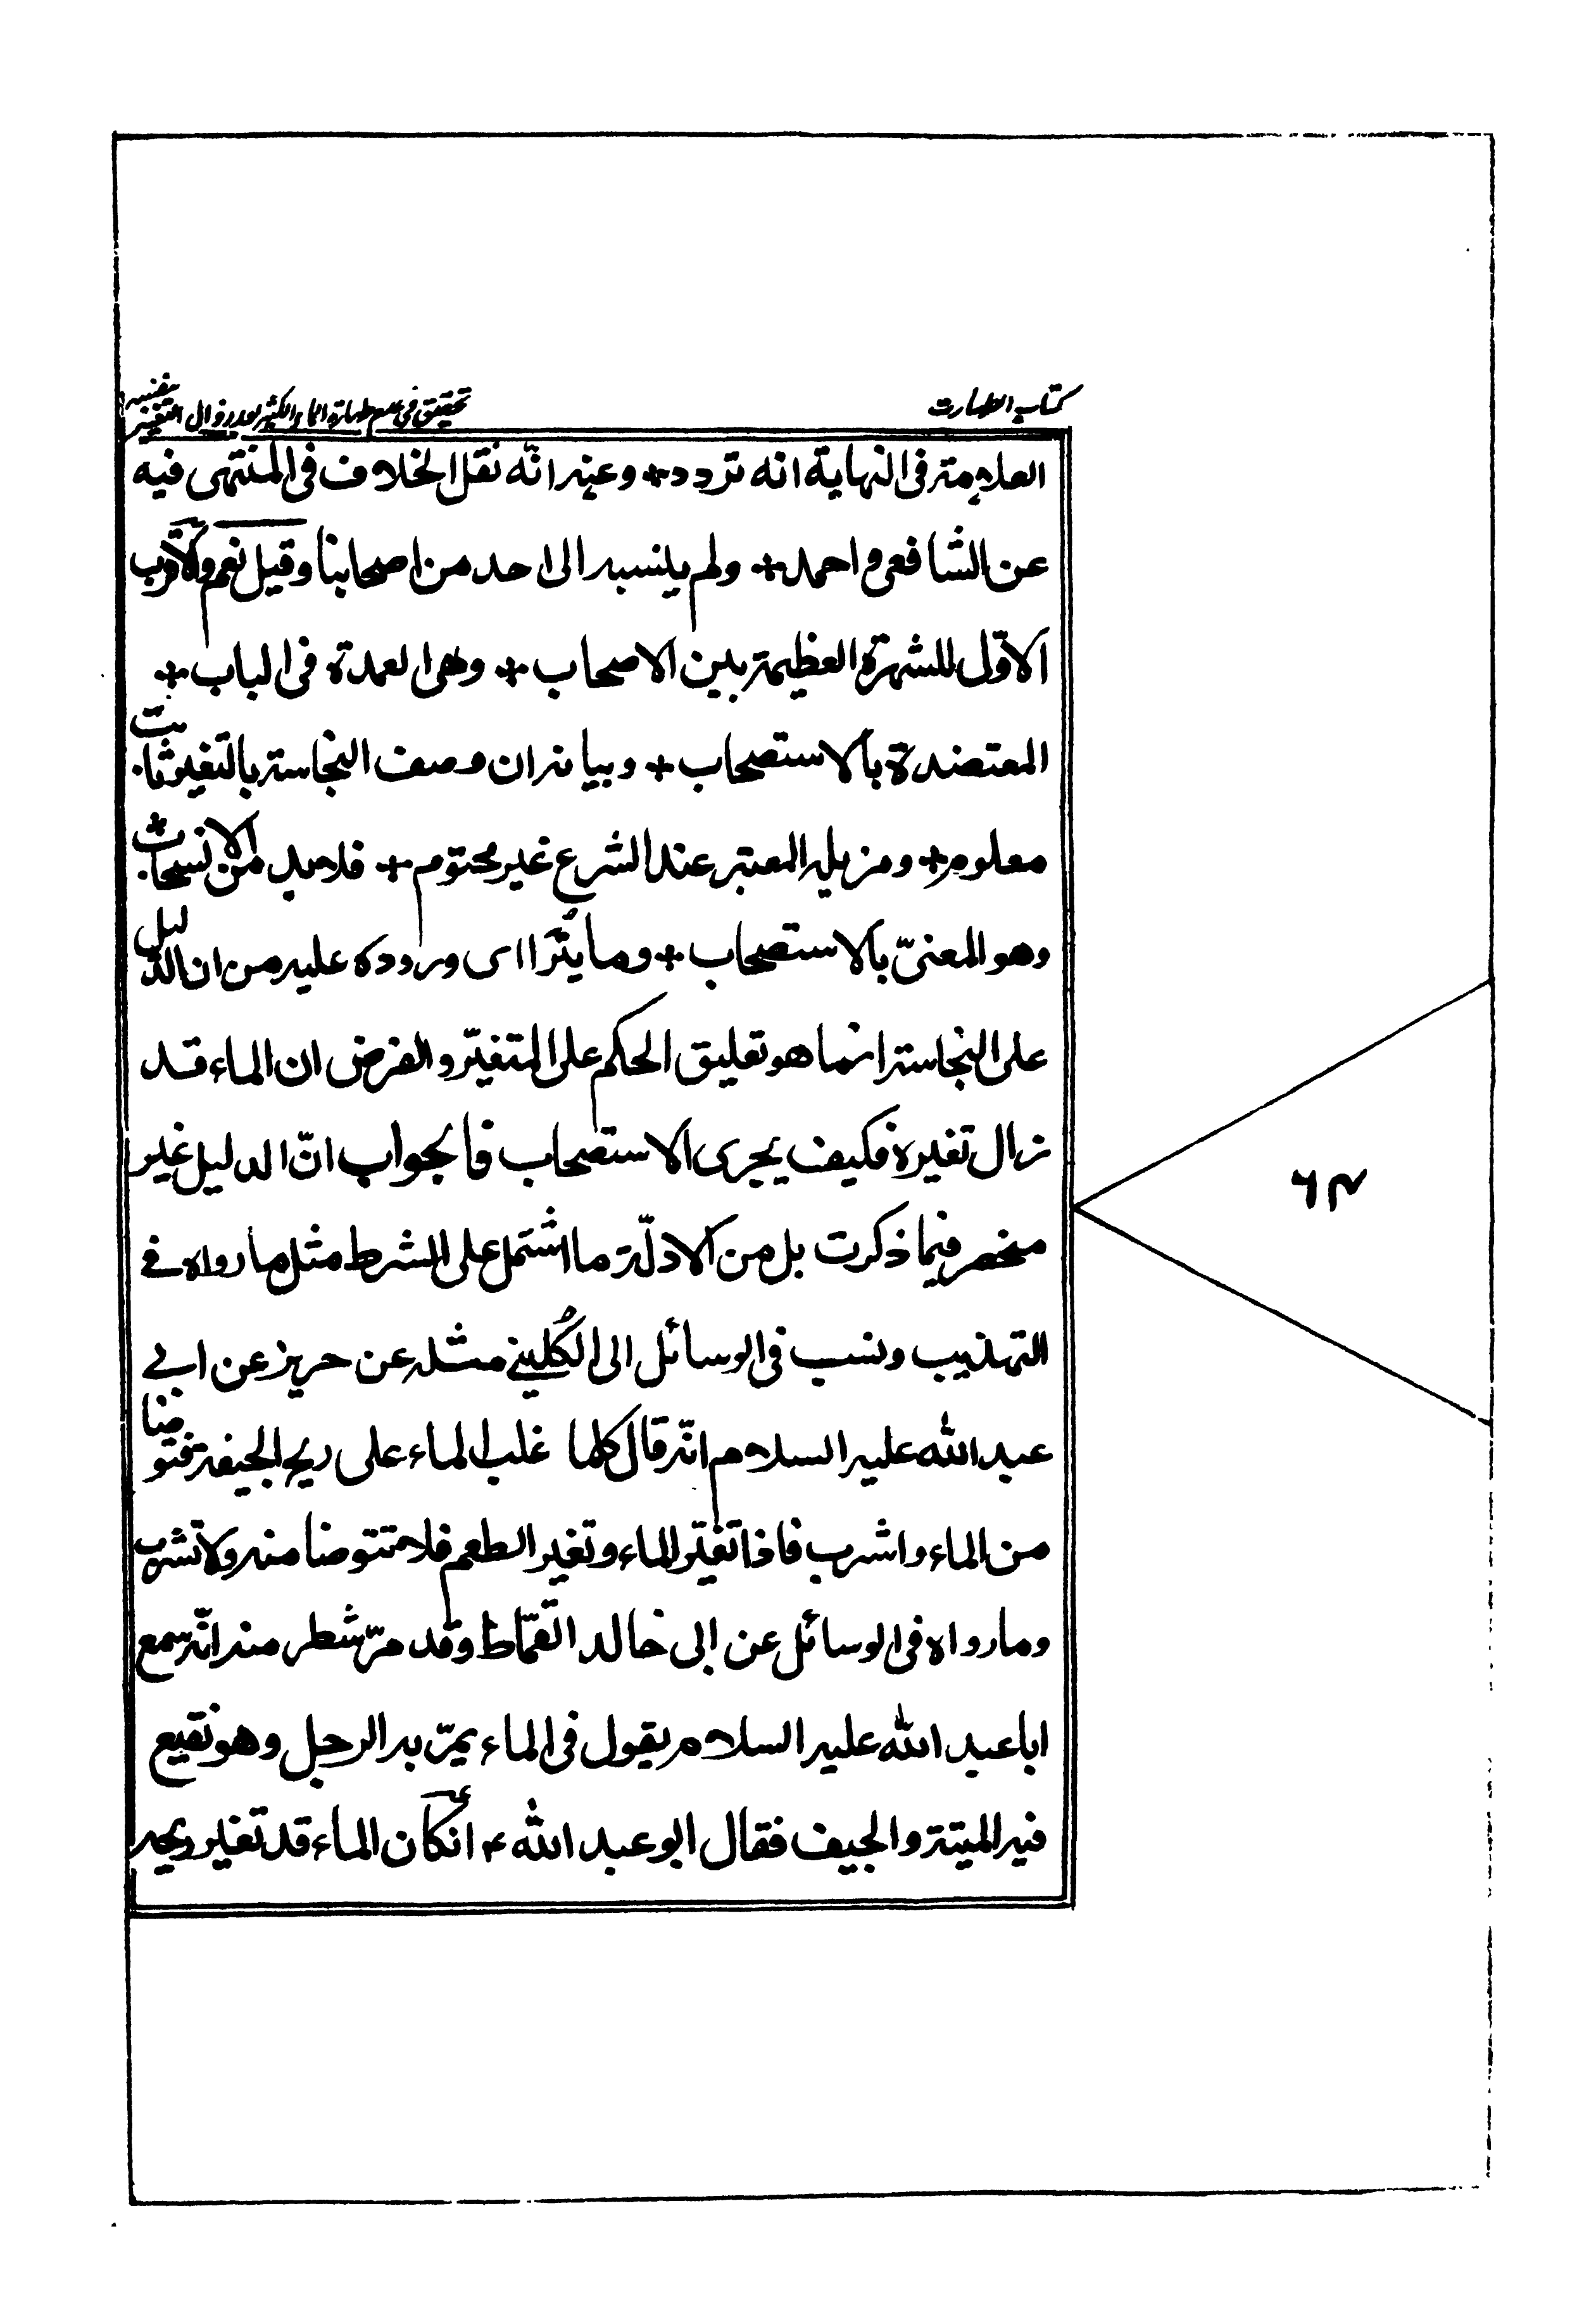 كتاب الطهارت
تحقيق فى عدم طهارة الماء الكثير بعد زوال التغير بنفسه
العلامة فى النهاية انه تردد + وعنه انّه نقل الخلاف فى المنتهى فيه
عن الشافعى واحمد + ولم ينسبه الى احد من اصحابنا وقيل نعم والاقرب
الاوّل للشهرة العظيمة بين الاصحاب + وهى العمدة فى الباب +
المعتضدة بالاستصحاب + وبيانه ان وصف النجاسة بالتغير ثابت
معلوم + ومزيله المعتبر عند الشرع غير محتوم + فلابد من الانسحاب +
وهو المعنىّ بالاستصحاب + وما يتراآى وروده عليه من ان الدليل
على النجاسة انما هو تعليق الحكم على المتغيّر والفرض ان الماء قد
زال تغيره فكيف يجرى الاستصحاب فالجواب انّ الدليل غير
منحصر فيما ذكرت بل من الادلّة ما اشتمل على الشرط مثل ما رواه فى
التهذيب ونسب فى الوسائل الى الكُلينى مثله عن حريز عن ابى
عبد الله عليه السلام انّه قال كلما غلب الماء على ريح الجيفة فتوضا
من الماء واشرب فاذا تغيّر الماء وتغير الطعم فلا تتوضا منه ولا تشرب
وما رواه فى الوسائل عن ابى خالد القمّاط وقد مرّ شطر منه انّه سمع
ابا عبد الله عليه السلام يقول فى الماء يمرّ به الرجل وهو نقيع
فيه الميتة والجيف فقال ابو عبد الله ع ان كان الماء قد تغير ريحه
٦٣